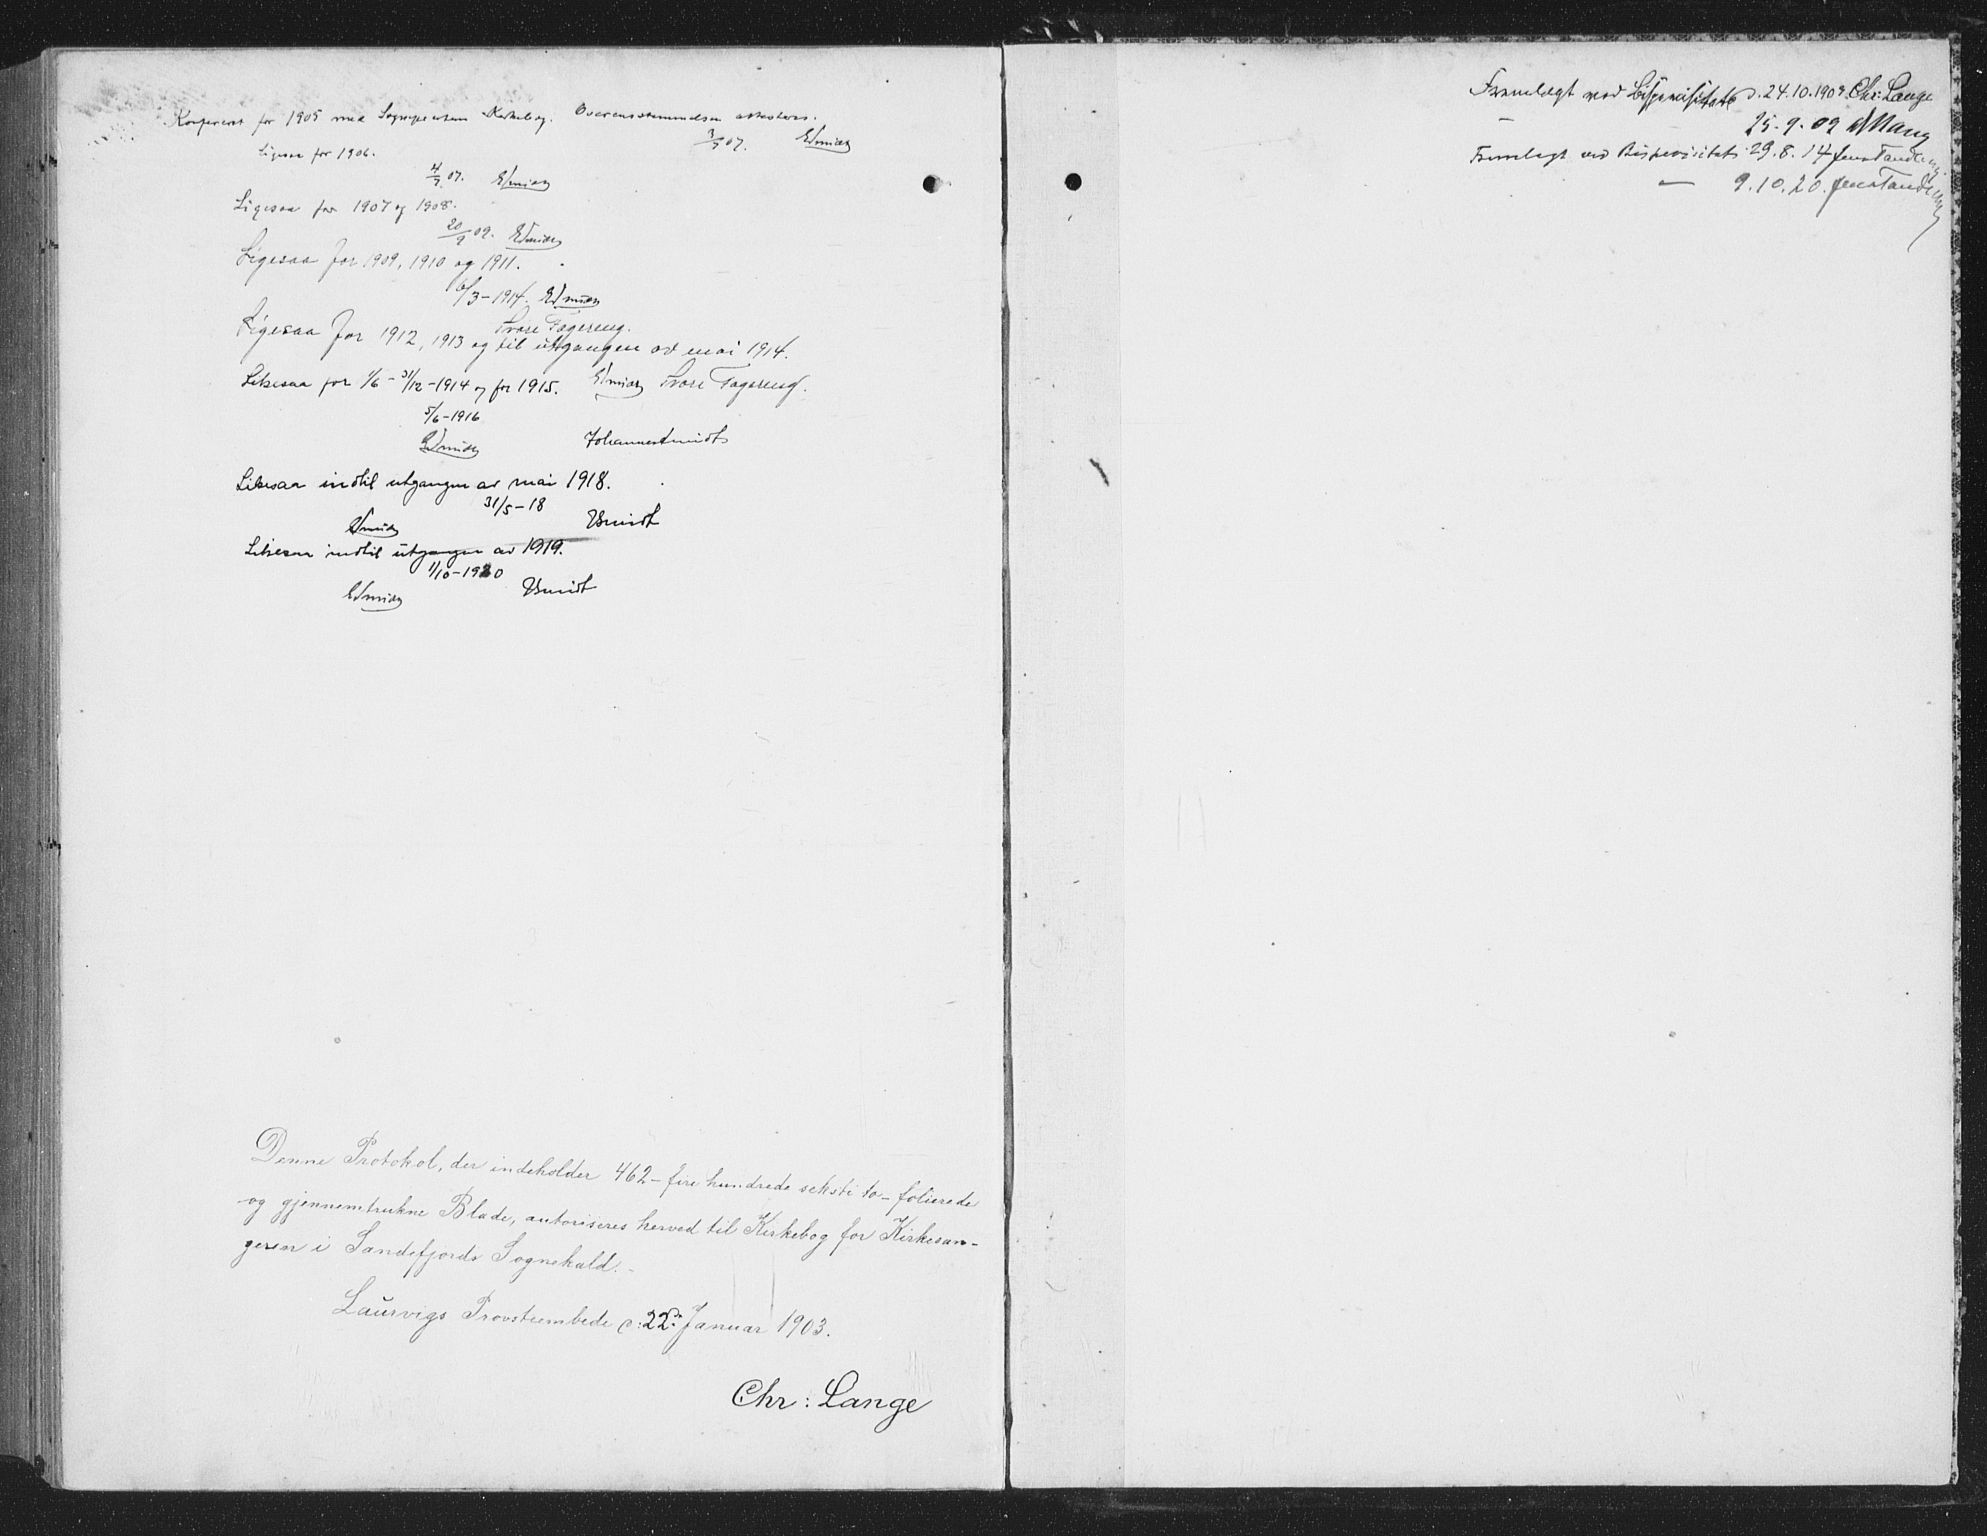 Konfereret for 1905 med Sogneprestens Kirkebog. Overensstemmelsen attesteres.
3/5 07. ESmidt
Ligesaa for 1906.
07. ESmidt
Ligesaa for 1907 og 1908.
20/9 09. ESmidt
Ligesaa for 1909, 1910 og 1911.
6/3-1914. ESmidt
Tvare Fagereng.
Ligesaa for 1912, 1913 og til utgangen av mai 1914.
Likesaa for 1/6 - 31/12 - 1914 og for 1915. ESmidt Tvare Fagereng.
5/6-1916
ESmidt Johannes Smidt
Likesaa indtil utgangen av mai 1918.
31/5-18
ESmidt JSmidt
Likesaa indtil utgangen av 1919.
1/10-1920
ESmidt JSmidt
Denne Protokol, der indeholder 462 - fire hundrede seksti to - folierede
og gjennemtrukne Blade, autoriseres herved til Kirkebog for Kirkesan-
geren i Sandefjords Sognekald.-
Laurvigs Provstembede d: 22de Januar 1903.
Chr: Lange
Fremlagt ved Bispevisitats d. 24.10.1904 Chr: Lange
— 25-9-09
Fremlagt ved Bispevisitats 29.8.14 Jens Tandberg
— 9.10.20. Jens Tandberg